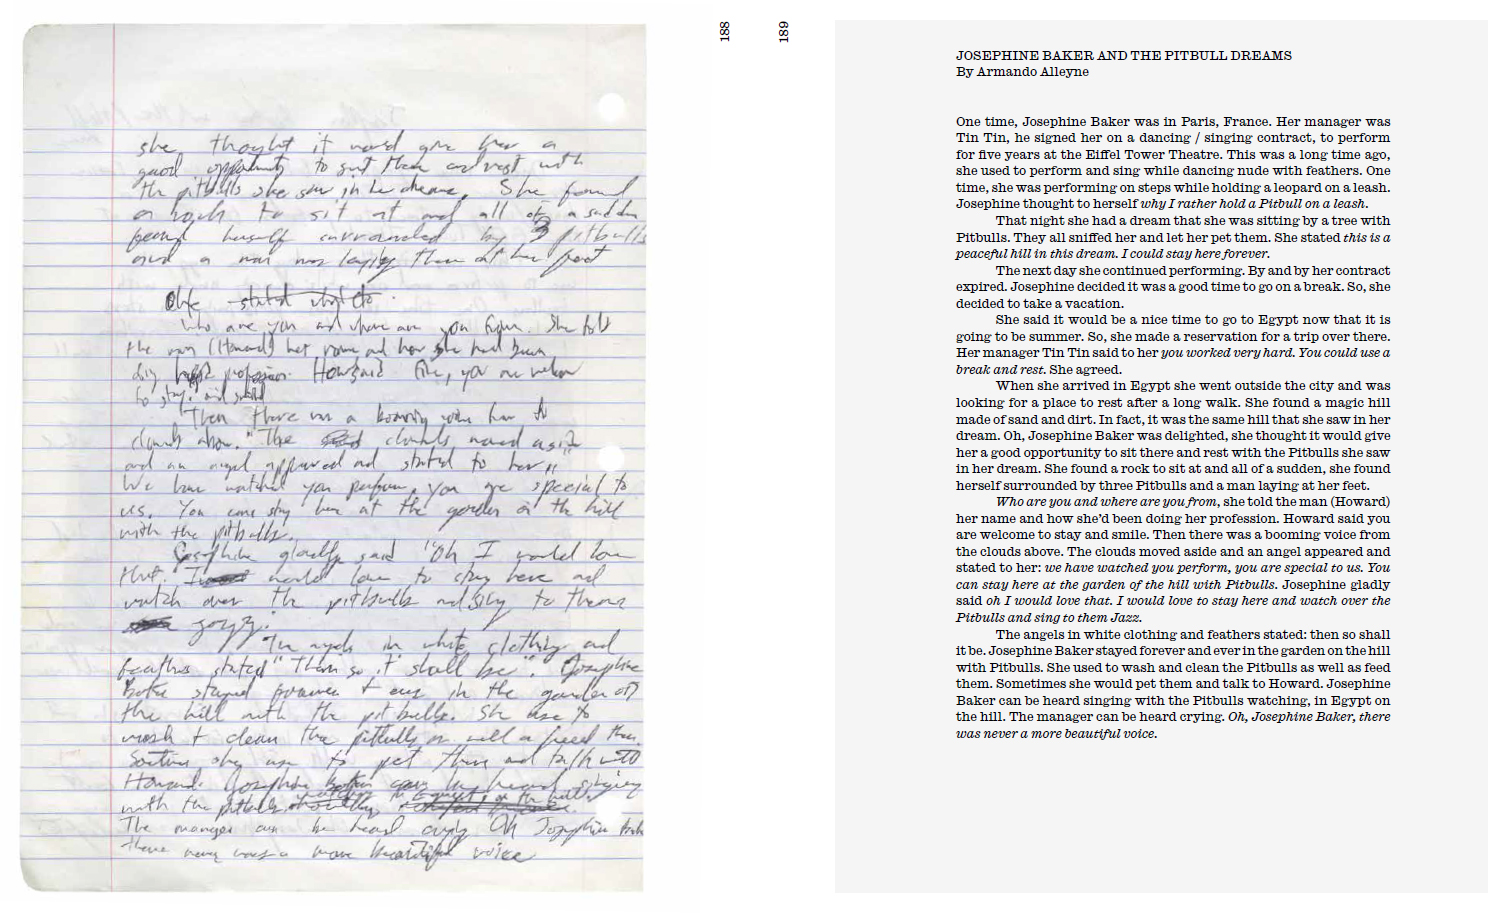 she thought it would give her a
good opportunity to sit there and rest with
the pitbulls she saw in her dreams. She found
a rock to sit at and all of a sudden
found herself surrounded by 3 pitbulls
and a man was laying there at her feet
stated
Who are you and where are you from. She told
the man (Howard) her name and how she had been
doing her profession. Howard said you are welcome
to stay. and smile
Then there was a booming voice from the
clouds above. "The clouds moved aside
and an angel appeared and stated to her,"
We have watched you perform, you are special to
us. You can stay here at the garden on the hill
with the pitbulls.
Josephine gladly said "Oh I would love
that. I would love to stay here and
watch over the pitbulls and sing to them
jazz.
The angels in white clothing and
feathers stated "Then so it shall be". Josephine
Baker stayed forever + ever in the garden on
the hill with the pit bulls. She use to
wash + clean the pitbulls as well as feed them.
Sometimes she use to pet them and talk to
Howard. Josephine Baker can be heard singing
with the pitbulls watching in Egypt, on the hill.
The manager can be heard crying "Oh Josephine Baker
there never was a more beautiful voice
188
189
JOSEPHINE BAKER AND THE PITBULL DREAMS
By Armando Alleyne
One time, Josephine Baker was in Paris, France. Her manager was
Tin Tin, he signed her on a dancing / singing contract, to perform
for five years at the Eiffel Tower Theatre. This was a long time ago,
she used to perform and sing while dancing nude with feathers. One
time, she was performing on steps while holding a leopard on a leash.
Josephine thought to herself why I rather hold a Pitbull on a leash.
That night she had a dream that she was sitting by a tree with
Pitbulls. They all sniffed her and let her pet them. She stated this is a
peaceful hill in this dream. I could stay here forever.
The next day she continued performing. By and by her contract
expired. Josephine decided it was a good time to go on a break. So, she
decided to take a vacation.
She said it would be a nice time to go to Egypt now that it is
going to be summer. So, she made a reservation for a trip over there.
Her manager Tin Tin said to her you worked very hard. You could use a
break and rest. She agreed.
When she arrived in Egypt she went outside the city and was
looking for a place to rest after a long walk. She found a magic hill
made of sand and dirt. In fact, it was the same hill that she saw in her
dream. Oh, Josephine Baker was delighted, she thought it would give
her a good opportunity to sit there and rest with the Pitbulls she saw
in her dream. She found a rock to sit at and all of a sudden, she found
herself surrounded by three Pitbulls and a man laying at her feet.
Who are you and where are you from, she told the man (Howard)
her name and how she'd been doing her profession. Howard said you
are welcome to stay and smile. Then there was a booming voice from
the clouds above. The clouds moved aside and an angel appeared and
stated to her: we have watched you perform, you are special to us. You
can stay here at the garden of the hill with Pitbulls. Josephine gladly
said oh I would love that. I would love to stay here and watch over the
Pitbulls and sing to them Jazz.
The angels in white clothing and feathers stated: then so shall
it be. Josephine Baker stayed forever and ever in the garden on the hill
with Pitbulls. She used to wash and clean the Pitbulls as well as feed
them. Sometimes she would pet them and talk to Howard. Josephine
Baker can be heard singing with the Pitbulls watching, in Egypt on
the hill. The manager can be heard crying. Oh, Josephine Baker, there
was never a more beautiful voice.